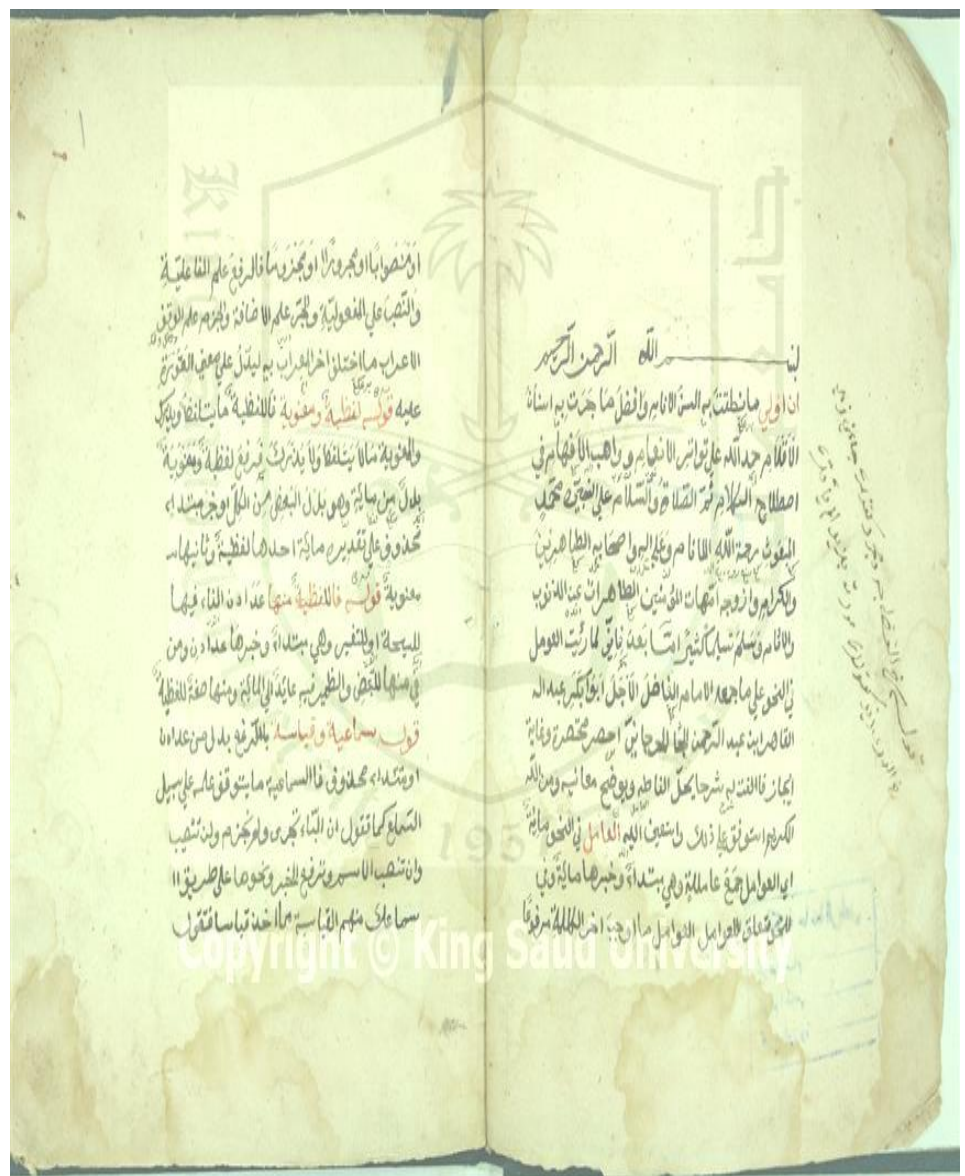 بسم الله الرحمن الرحيم
ان اولي ما نطقت به السن الانام وافضل ما جرت به اسنان
الاقلام حمد الله علي تواتر الانعام وواهب الافهام في
اصطلاح الكلام ثم الصلاة والسلام علي النبي محمد
المبعوث رحمة الله للانام وعلي اله واصحابه الطاهرين
والكرام وازوجه امهات المؤمنين الطاهرات عن الذنوب
والاثام وسلم تسليما كثيرا امّا بعد فاني لما رئيت العومل
في النحو علي ما جمعه الامام الفاضل الاجل ابوا بكر عبد الـ
القاهر ابن عبد الرحمن الجرجاني احصر مختصرة وغاية
ايجاز فالفت له شرحا يحل الفاظه ويوضح معانيه ومن الله
الكريم استوفق علي ذلك واستعين اليه العامل في النحو مائة
اي العوامل جمع عاملة وهي مبتداء وخبرها مائة وفي
النحو متعلق للعوامل العوامل ما اوجب اخر الكلمة مرفوعا
او منصوابا او مجرورا او مجزوما فالرفع علم الفاعلية
والنصب علي المفعولية والجر علم الاضافة والجزم علم الوقف
الاعراب ما اختلف اخر المعراب به ليدل علي معني المعتورة
عليه قوله لفظية ومعنوية فاللفظية ما يتلفظ ويدرك
والمعنوية ما لا يتلفظ ولا يدرك فيرفع لفظية ومعنوية
بدل من مائة وهو بدل البعض من الكل او خبر مبتداء
محذوف علي تقديره مائة احدها لفظية وثانيها
معنوية قوله فاللفظية منها عدادن الفاء فيها
للنتيجة او للتفسير وهي مبتداء وخبرها عدادن ومن
في منها للتبعض والظمير فيه عايد الي المائة ومنها صفة للفظية
قوله سماعية وقياسة بالرفع بدل من عدادن
او مبتداء محذوف فا السماعية ما يتوقف عليه علي سبيل
السماع كما تقول ان الباء تجرى ولم تجزم ولن تنصب
وان تنصب الاسم وترفع الخبر ونحوها علي طريق ا
سماعك منهم القياسية ما اخذ قياسا فتقول
Copyright © King Saud University
1957